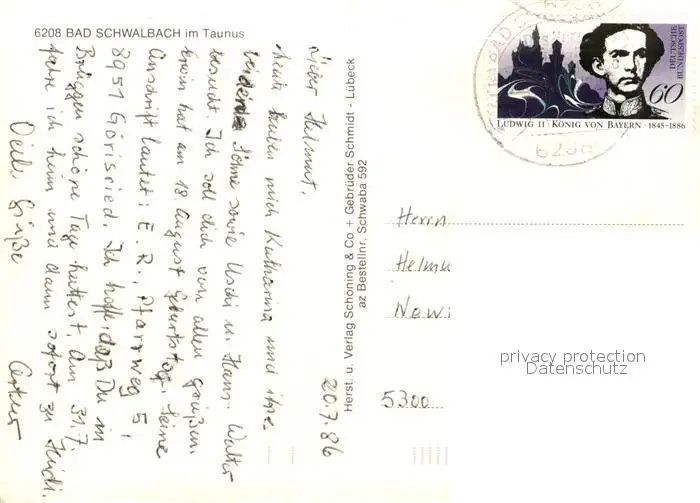 6208 BAD SCHWALBACH im Taunus
20.7.86
Lieber Helmut,
heute haben mich Katharina und ihre
beiden Söhne sowie Uschi u. Hans-Walter
besucht. Ich soll dich von allen grüßen.
Erwin hat am 18. August Geburtstag. Seine
Anschrift lautet: E. R., Pfarrweg 5,
8951 Görisried. Ich hoffe, daß Du in
Brüggen schöne Tage hattest. Am 31.7.
fahre ich heim und dann sofort zu Heidi.
Viele Grüße
Herst. u. Verlag Schöning & Co + Gebrüder Schmidt - Lübeck
az Bestellnr. Schwaba 592
DEUTSCHE BUNDESPOST
60
LUDWIG II · KÖNIG VON BAYERN · 1845-1886
6208
Herrn
Helmu
Newi
5300
privacy protection
Datenschutz